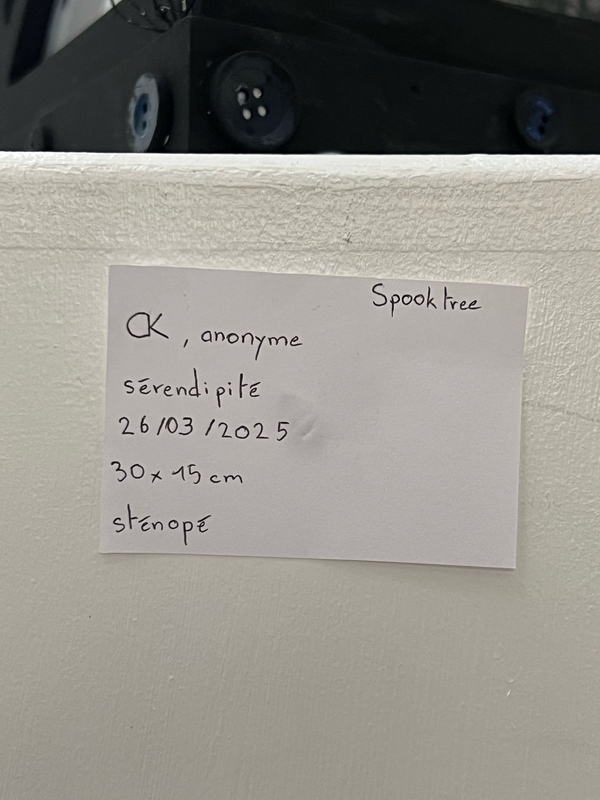 Spooktree
CK, anonyme
sérendipité
26/03/2025
30 x 15 cm
sténopé